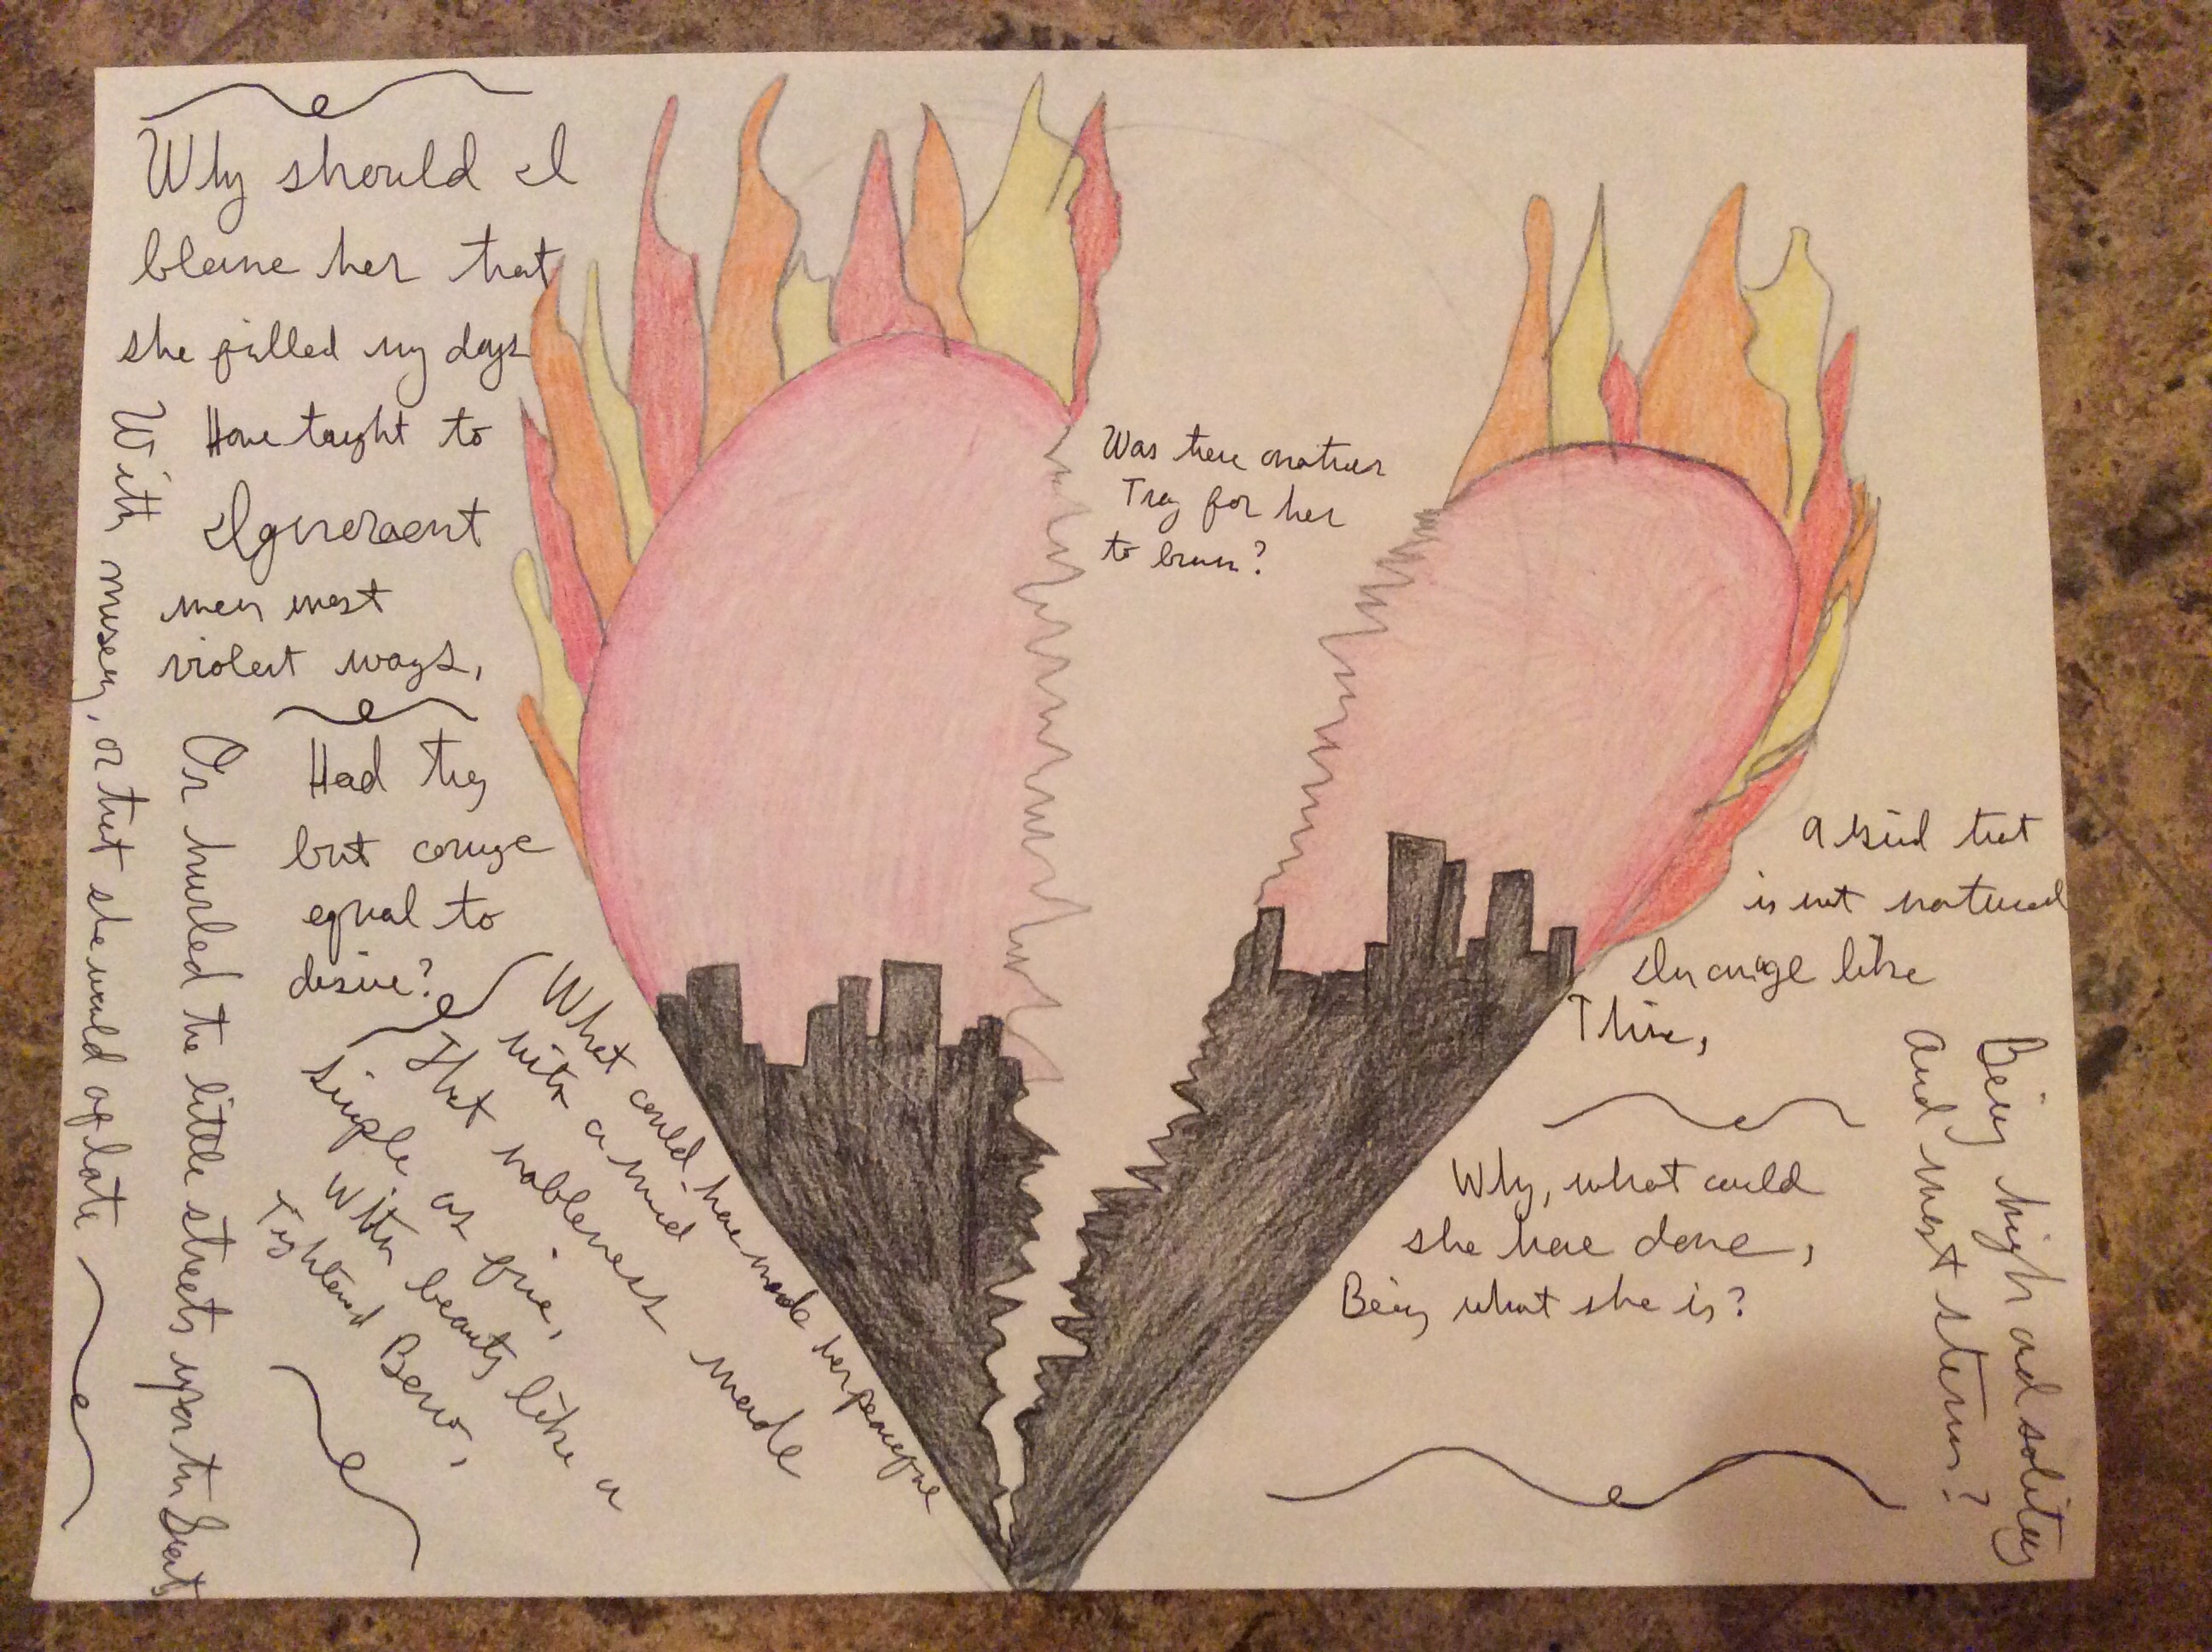 Why should I
blame her that
she filled my days
With misery, or that she would of late
Have taught to
Ignoraent
men most
violent ways,
Or hurled the little streets upon the Great
Had they
but courage
equal to
desire?
What could have made her peaceful
with a mind
That nobleness made
simple as fire,
With beauty like a
Tightend Bow,
A kind that
is not natural
In an age like
This,
Being high and solitary
And most stern?
Why, what could
she have done,
Being what she is?
Was there another
Troy for her
to burn?